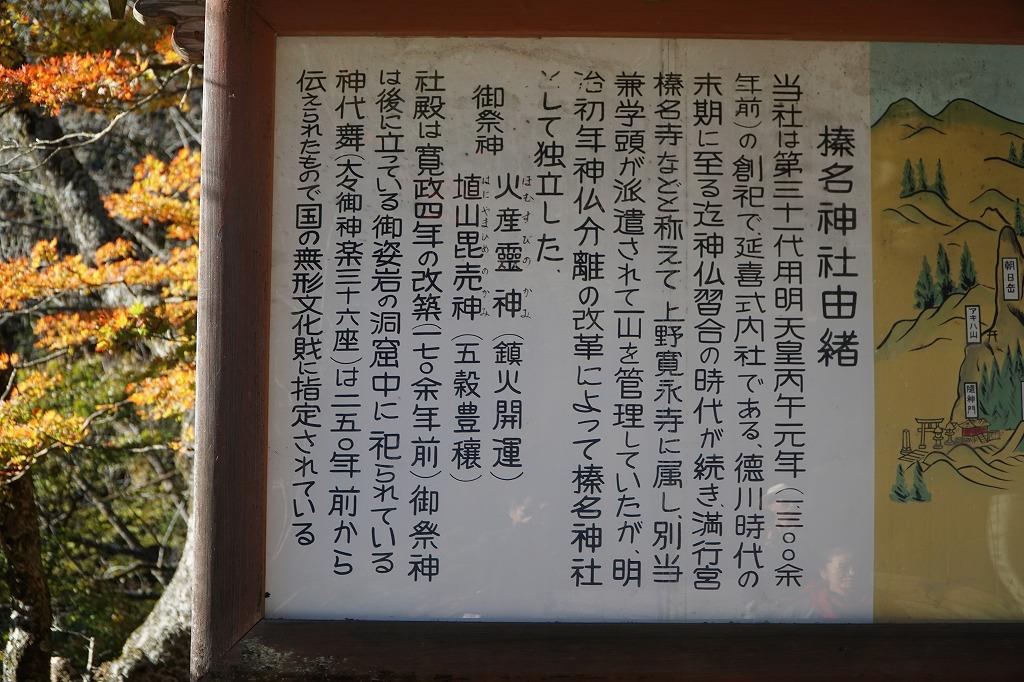 榛名神社由緒
当社は第三十一代用明天皇丙午元年(一、三〇〇余
年前)の創祀で、延喜式内社である、徳川時代の
末期に至る迄神仏習合の時代が続き、満行宮
榛名寺などと称えて、上野寛永寺に属し、別当
兼学頭が派遣されて一山を管理していたが、明
治初年神仏分離の改革によって榛名神社
として独立した
御祭神
火産靈神(鎮火開運)
ほむすびのかみ
埴山毘売神(五穀豊穰)
はにやまひめのかみ
社殿は寛政四年の改築(一七〇余年前)御祭神
は後に立っている御姿岩の洞窟中に祀られている
神代舞(大々御神楽三十六座)は二五〇年前から
伝えられたもので国の無形文化財に指定されている
朝日岳
アキハ山
隨神門